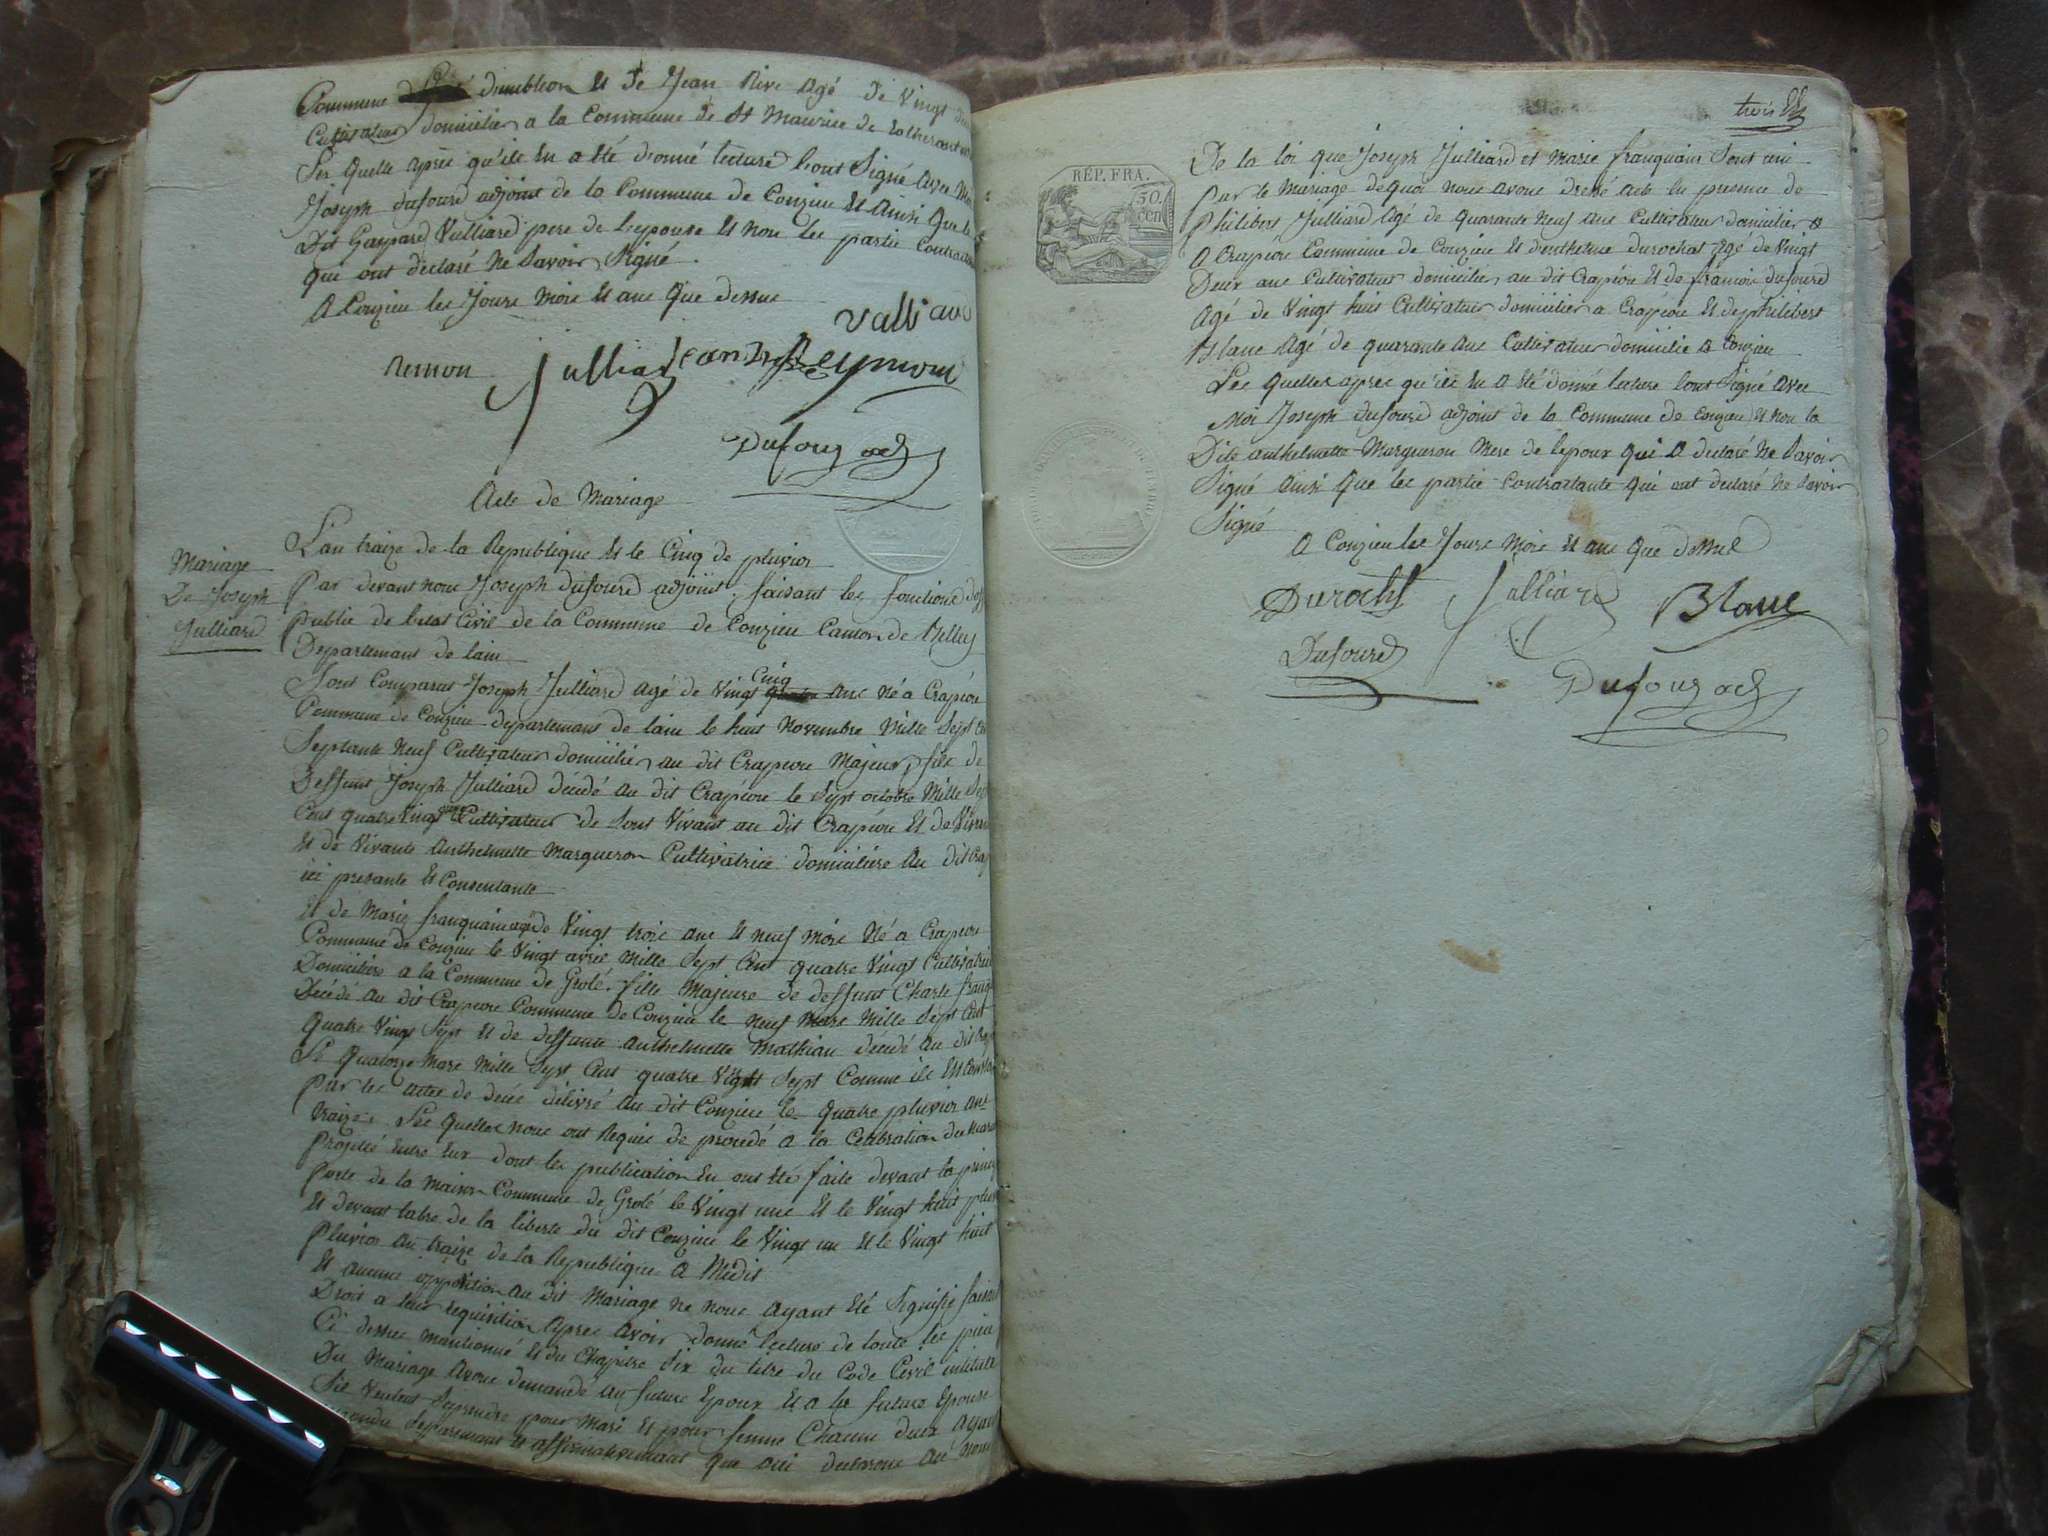 Commune d'imbleon et de Jean Rive Agé De Vingt
Cultivateur domicilier a la Commune de St Maurice de
Les Quelle aprèe qu'ile en a Eté donné lecture l'ont Signé avec
Joseph dufourd adjoint de la Commune de Conzieu et Ainsi Que le
Dit Gaspard Vulliard pere de l'epouse et non lec partie Contractan
qui ont declaré Ne Savoir Signé
A Conzieu lec Joure Moie Et anc Que dessue
remon Julliard Jean Reymond
Dufour adj
Acte de Mariage
Mariage
De Joseph
Julliard
L'an traize de la Republique Et le Cinq de pluvior
Par devant nouc Joseph dufourd adjoint faisant lec fonctione
Public de l'etat Civil de la Commune de Conzieu Canton de Belley
Departemant de lain
Sont Comparut Joseph Julliard agé de Vingt Cinq anc Né a Crapéou
Commune de Conzieu departemant de lain le huit Novembre Mille Sept Ce
Septante Neuf Cultivateur domicilié au dit Crapeou Majeur, file de
Deffunt Joseph Julliard décédé au dit Crapéou le Sept octobre Mille Sep
Cent quatre Vingt Cultivateur de Sont Vivant au dit Crapéou Et de
Et de Vivante Anthelmette Marqueron Cultivatrice domiciliere Au dit Cra
ici presante Et Consentante
Et de Marie franquain agé de Vingt troic anc Et neuf moic Né a Crapeou
Commune de Conzieu le Vingt avril Mille Sept Cent quatre Vingt Cultivatrice
Domiciliere a la Commune de Grolé. fille Majeure de deffunt Charle franq
Décédé au dit Crapeou Commune de Conzieu le Neuf Mars Mille Sept Cent
Quatre Vingt Sept Et de deffunte Anthelmette Mathiau décédé Au dit Crap
Le Quatorze Mare Mille Sept Cent quatre Vight Sept Comme ile Est Const
Par lec actee de décéé délivré Au dit Conzieu le quatre pluvior anc
Traize. Lec Quellee nouc ont Requie de procedé a la Celebration du Maria
Projetté Entre Eux dont lec publication En ont Eté faite devant la princ
Porte de la maison Commune de Grolé le Vingt une Et le Vingt huit pluv
Et devant labre de la liberte du dit Conzieu le Vingt un Et le Vingt huit
Pluvior an traize de la Republique A Midis
Et aucune opposition Au dit Mariage ne nouc ayant Eté Signifié faisant
Droit a leur requisition Apree avoir donné lecture de toute lec piece
Ci dessue mantionné Et du Chapitre Six du titre du Code Civil intitulé
Du Mariage Avonc demandé au future Epoux Et a la future Epouse
Sil Veulent Seprendre pour Mari Et pour femme Chacun deux Ayant
repondu Separemant Et affirmativemant Que oui declarone Au nom
troic
RÉP. FRA.
50. cen
De la loi que Joseph Julliard et Marie franquain Sont uni
Par le Mariage de quoi nouc avonc dressé acte En presence de
Philibert Julliard Agé de quarante Neuf anc Cultivateur domicilier
A Crapeou Commune de Conzieu Et d'enthelme durochat Agé de Vingt
Deux anc Cultivateur domicilier au dit Crapéou Et de francoie dufourd
Agé de Vingt huit Cultivateur domicilier a Crapéou Et de philibert
Blanc Agé de quarante anc Cultivateur domicilié a Conzieu
Lec Quellee apree qu'ici En a Eté donné lecture l'ont Signé avec
Moi Joseph dufourd adjoint de la Commune de Conzieu Et non la
Dite anthelmette Marqueron Mere de lepoux Qui a declaré Ne Savoir
Signé ainsi Que lec partie Contractante Qui ont declaré Ne Savoir
Signé
A Conzieu lec Joure Moie Et anc Que dessue
Durochat Julliard Blanc
Dufourd
Dufour adj